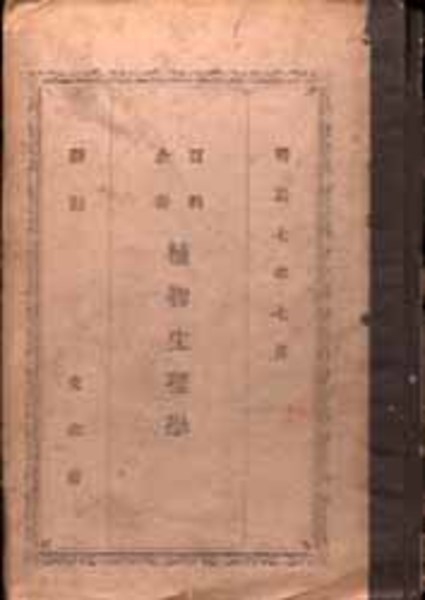 明治七年七月
百科全書
植物生理學
文部省